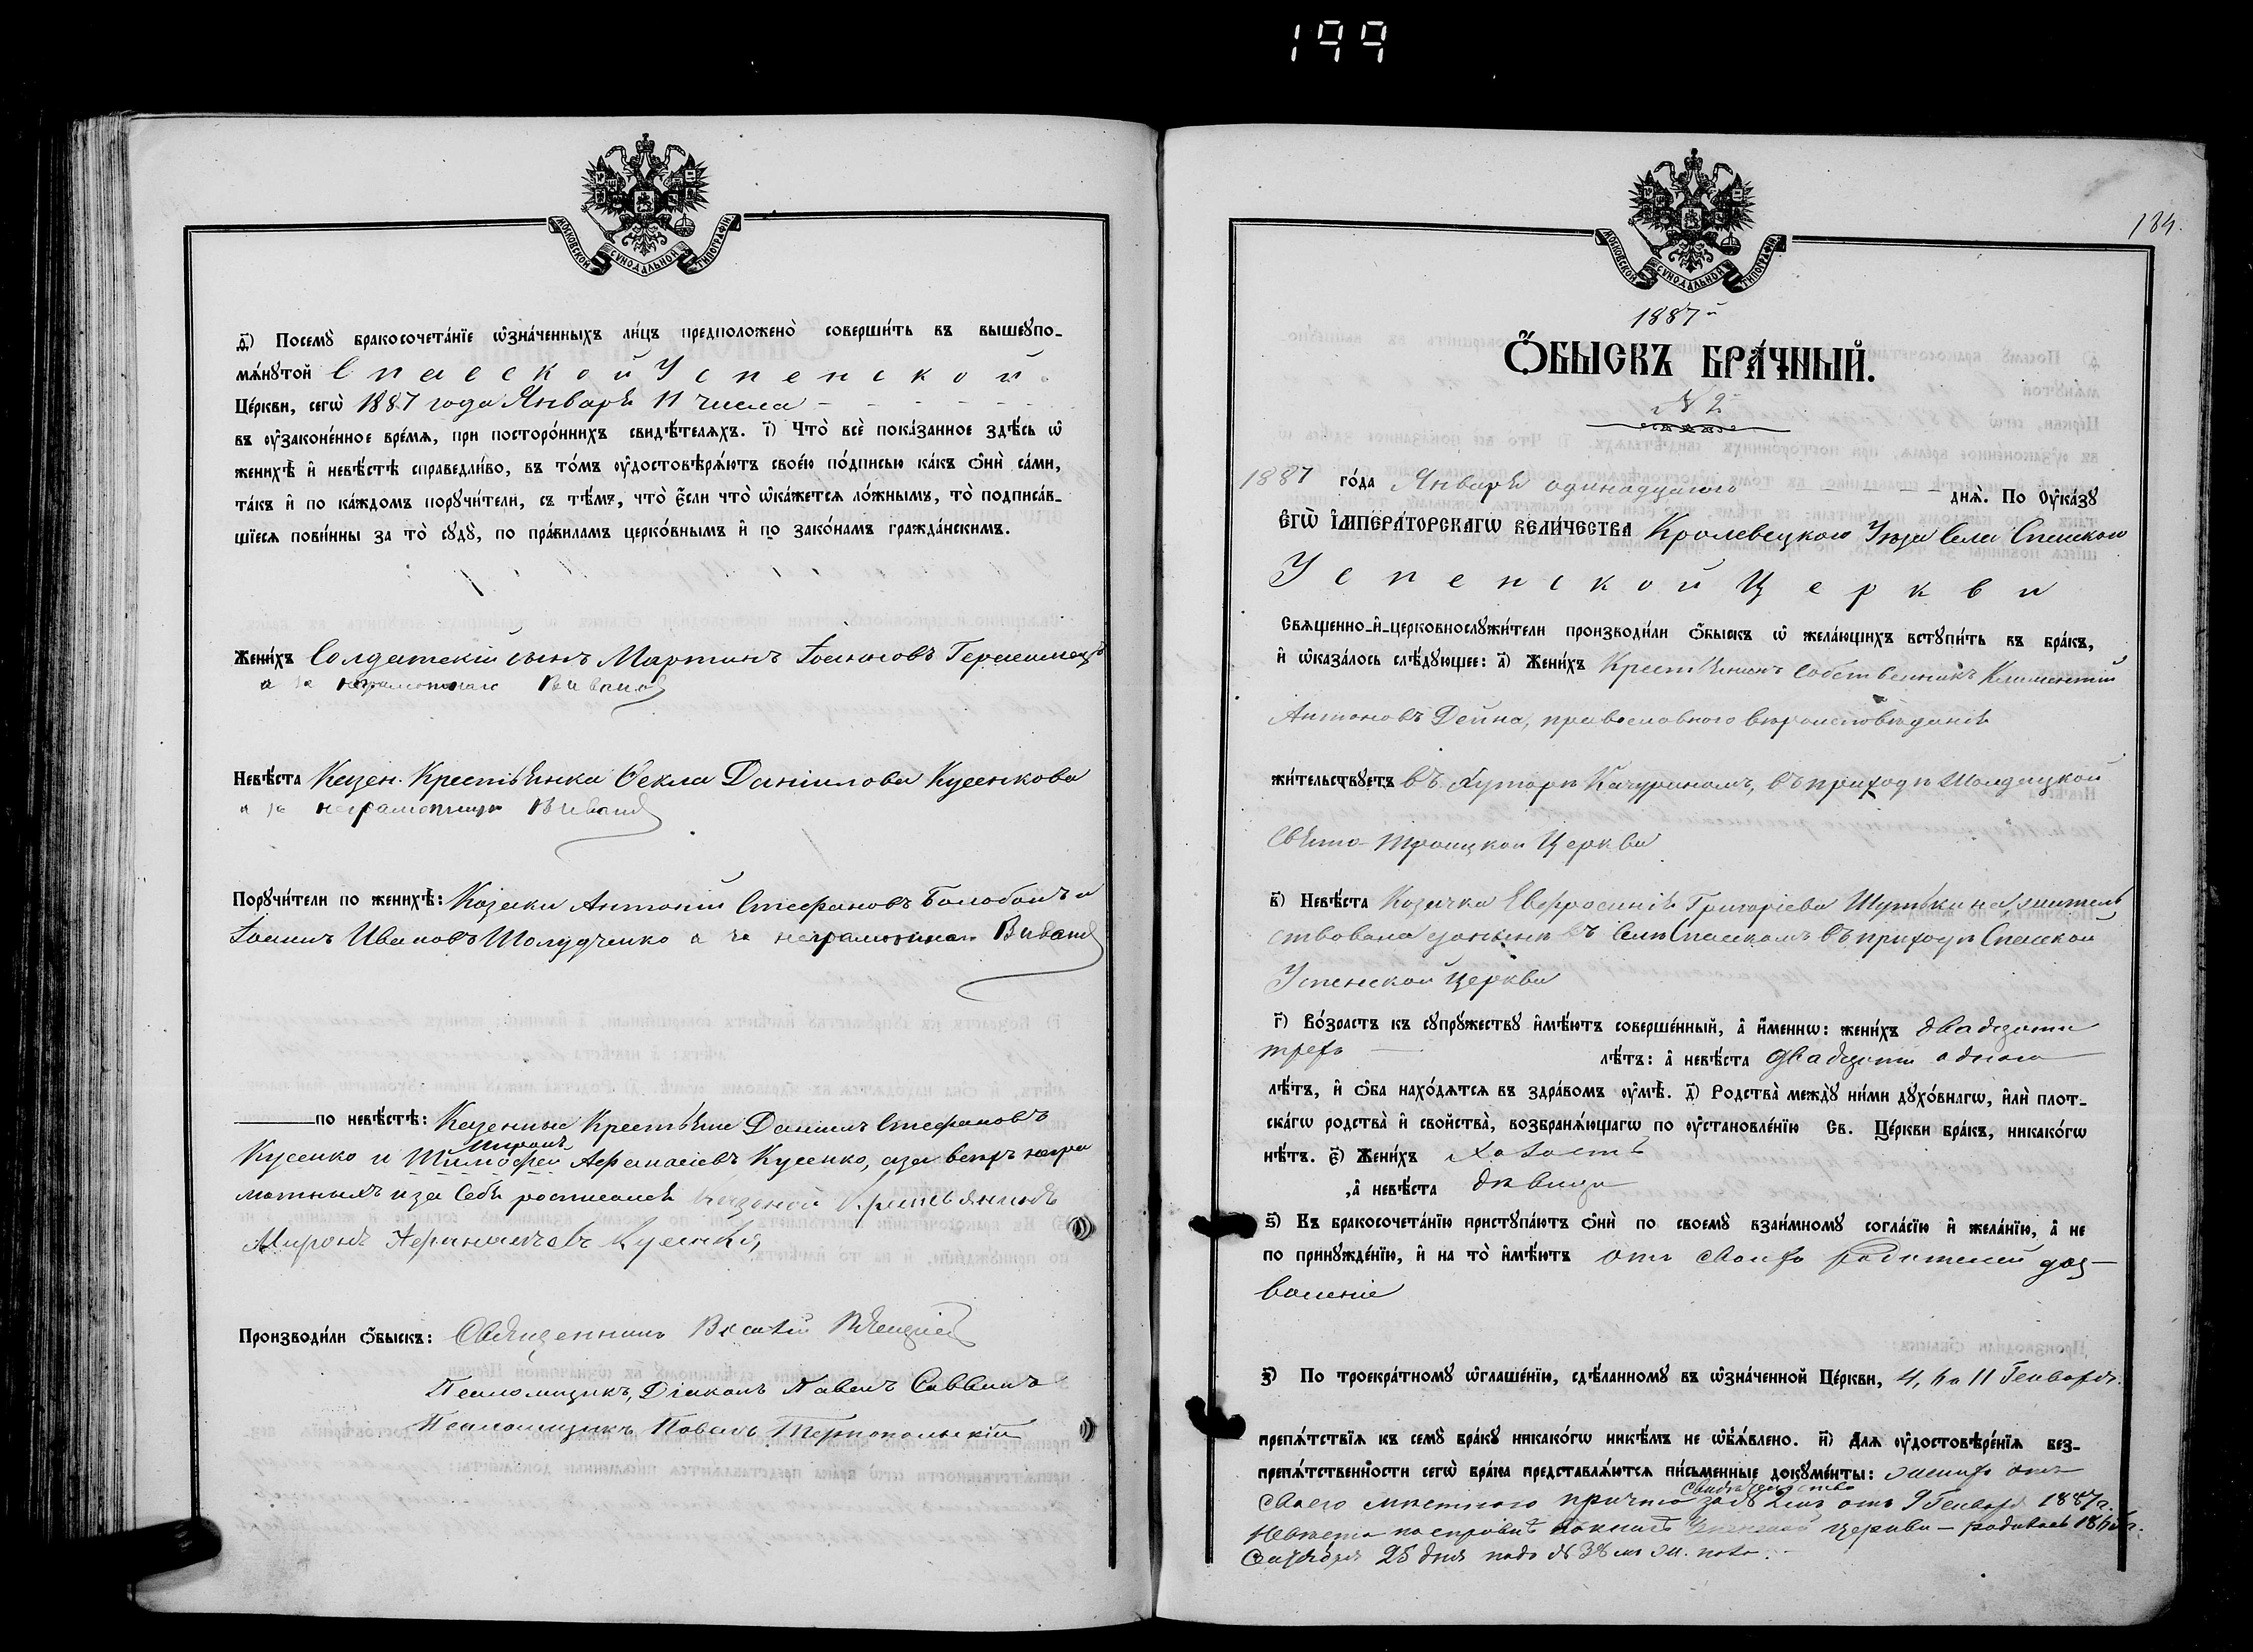 199
МОСКОВСКОЙ СѴНОДАЛЬНОЙ ТИПОГРАФІИ
д҃) Посемꙋ̀ бракосочета́нїе ѡ҆зна́ченныхъ ли́цъ предположено̀ соверши́ть въ вышеꙋпо-
мѧ́нꙋтой Спасской Успенской
Це́ркви, сегѡ̀ 1887 года Января 11 числа
въ ᲂу҆зако́ненное вре́мѧ, при посторо́ннихъ свидѣ́телѧхъ. і҃) Что̀ всѐ пока́занное здѣ́сь ѡ҆
женихѣ̀ и҆ невѣ́стѣ справедли́во, въ то́мъ ᲂу҆достовѣрѧ́ютъ свое́ю по́дписью ка́къ ѻ҆нѝ са́ми,
та́къ и҆ по ка́ждомъ порꙋчи́тели, съ тѣ́мъ, что̀ є҆́сли что̀ ѡ҆ка́жетсѧ ло́жнымъ, то̀ подписа́в-
шїесѧ пови́нны за то̀ сꙋдꙋ̀, по пра́виламъ церко́внымъ и҆ по зако́намъ гражда́нскимъ.
Жени́хъ Солдатскій сынъ Мартинъ Іоанновъ
а за неграмотнаго
Невѣ́ста Казен. Крестьянка Ѳекла Даніилова Кусенкова
а за неграмотную
Порꙋчи́тели по женихѣ̀: Козаки Антоній Стефановъ Болобонъ и
Іоаннъ Ивановъ Шолудченко а за неграмотных
по невѣ́стѣ: Казенные Крестьяне Даніилъ Стефановъ
Миронъ
Кусенко и Тимофей Афанасіевъ Кусенко, а за всехъ негра
мотныхъ и за себя росписался казеной Крестьянинъ
Миронъ Афанасіевъ Кусенко
Производи́ли ѻ҆́быскъ: Священникъ Василій
Псаломщикъ, Діаконъ Павелъ Саввинъ
Псаломщикъ Павелъ Тернопольскій
134.
МОСКОВСКОЙ СѴНОДАЛЬНОЙ ТИПОГРАФІИ
1887 г
Ѻ҆́БЫСКЪ БРА́ЧНЫЙ.
№ 2
1887 го́да Января одинадцатого днѧ̀. По Оу҆ка́зꙋ
Є҆гѡ̀ И҆мпера́торскагѡ Вели́чества Кролевецкого Уезда Села Спаского
Успенской Церкви
Свѧщенно-и҆-церковнослꙋжи́тели производи́ли ѻ҆́быскъ ѡ҆ жела́ющихъ встꙋпи́ть въ бра́къ,
и҆ ѡ҆каза́лось слѣ́дꙋющее: а҃) Жени́хъ Крестьянинъ собственникъ Климентій
Антоновъ Дейна, православного вероисповеданія
жи́тельствꙋетъ въ Хуторе Качуриномъ, въ приходе
Свято-Троицкой Церкви
в҃) Невѣ́ста Козачка Евфросинія Григоріева Шутькина житель
ствовала доныне въ Селе Спаскомъ въ приходе Спаской
Успенской Церкви
г҃) Во́зрастъ къ сꙋпрꙋ́жествꙋ и҆мѣ́ютъ соверше́нный, а҆ и҆́меннѡ: жени́хъ двадцати
трехъ лѣ́тъ: а҆ невѣ́ста двадцати одного
лѣ́тъ, и҆ ѻ҆́ба нахо́дѧтсѧ въ здра́вомъ ᲂу҆мѣ̀. д҃) Родства̀ междꙋ̀ ни́ми дꙋхо́внагѡ, и҆лѝ плот-
ска́гѡ родства̀ и҆ свойства̀, возбранѧ́ющагѡ по ᲂу҆становле́нїю Св. Це́ркви бра́къ, никако́гѡ
нѣ́тъ. є҃) Жени́хъ холостъ
, а҆ невѣ́ста девица
ѕ҃) Къ бракосочета́нїю пристꙋпа́ютъ ѻ҆нѝ по своемꙋ̀ взаи́мномꙋ согла́сїю и҆ жела́нїю, а҆ не
по принꙋжде́нїю, и҆ на то̀ и҆мѣ́ютъ отъ своихъ родителей доз-
воленіе
з҃) По троекра́тномꙋ ѡ҆глаше́нїю, сдѣ́ланномꙋ въ ѡ҆зна́ченной Це́ркви, 4, 6 и 11 Генваря.
препѧ́тствїѧ къ семꙋ̀ бра́кꙋ никако́гѡ никѣ́мъ не ѡ҆б̾ѧ́влено. и҃) Длѧ ᲂу҆достовѣре́нїѧ без-
препѧ́тственности сегѡ̀ бра́ка представлѧ́ютсѧ пи́сьменные докꙋме́нты: жених отъ
свидетельство
своего местного причта за № 2 отъ 9 Генваря 1887 г.
Невеста по справке Успенской церкви — родилась
25 дня подъ № 38 м. ж. пола.